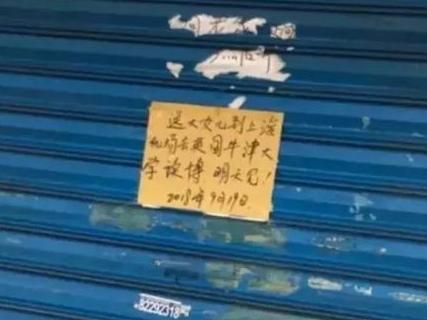 送大女儿到上海
机场去英国牛津大
学读博 明天见!
2018年9月19日.
82292318